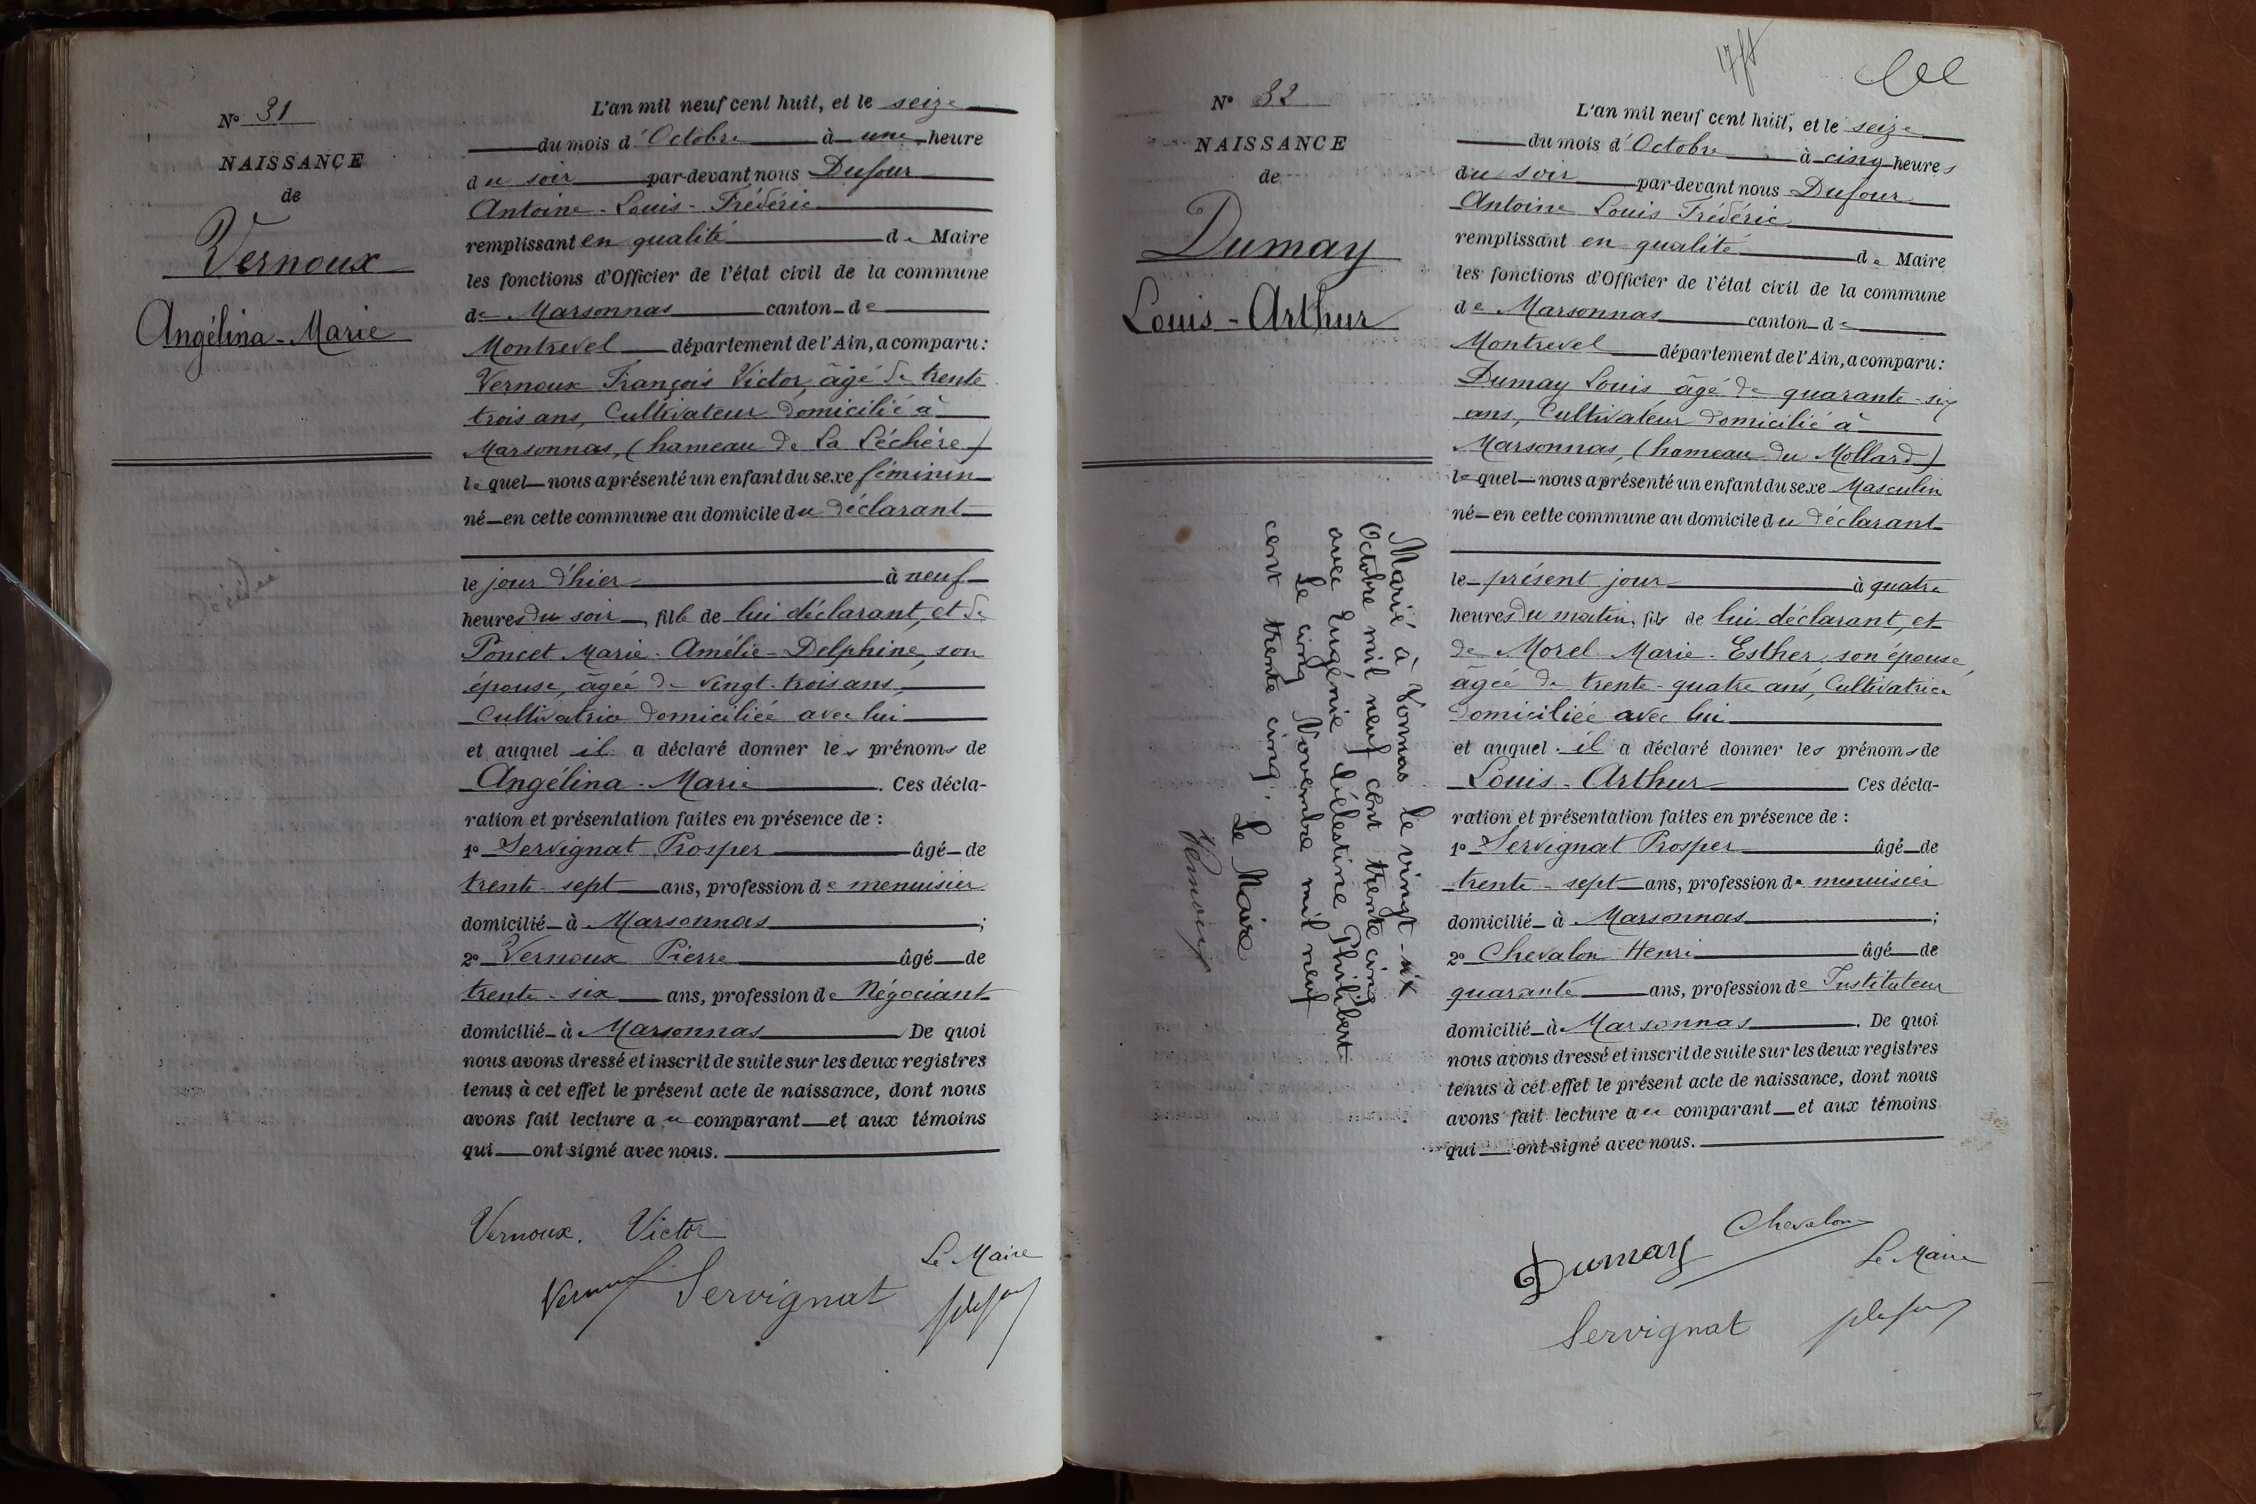 N° 31
NAISSANCE
de
Vernoux
Angélina-Marie
Décédée
L'an mil neuf cent huit, et le seize
du mois d'Octobre à une heure
du soir par-devant nous Dufour
Antoine-Louis-Frédéric
remplissant en qualité de Maire
les fonctions d'Officier de l'état civil de la commune
de Marsonnas canton de
Montrevel département de l'Ain, a comparu :
Vernoux François Victor, âgé de trente
trois ans, Cultivateur domicilié à
Marsonnas, (hameau de La Léchère)
lequel nous a présenté un enfant du sexe féminin
né en cette commune au domicile du déclarant
le jour d'hier à neuf
heures du soir, fille de lui déclarant, et de
Poncet Marie-Amélie-Delphine, son
épouse, âgée de vingt-trois ans,
Cultivatrice domiciliée avec lui
et auquel il a déclaré donner les prénoms de
Angélina-Marie. Ces décla-
ration et présentation faites en présence de :
1° Servignat Prosper âgé de
trente-sept ans, profession de menuisier
domicilié à Marsonnas ;
2° Vernoux Pierre âgé de
trente-six ans, profession de Négociant
domicilié à Marsonnas. De quoi
nous avons dressé et inscrit de suite sur les deux registres
tenus à cet effet le présent acte de naissance, dont nous
avons fait lecture au comparant et aux témoins
qui ont signé avec nous.
Vernoux. Victor
Le Maire
Servignat
N° 32
NAISSANCE
de
Dumay
Louis-Arthur
Marié à Vonnas le vingt-six
Octobre mil neuf cent trente cinq
avec Eugénie Célestine Philibert
Le cinq Novembre mil neuf
cent trente cinq. Le Maire
Vernoux
L'an mil neuf cent huit, et le seize
du mois d'Octobre à cinq heures
du soir par-devant nous Dufour
Antoine Louis Frédéric
remplissant en qualité de Maire
les fonctions d'Officier de l'état civil de la commune
de Marsonnas canton de
Montrevel département de l'Ain, a comparu :
Dumay Louis âgé de quarante-six
ans, Cultivateur domicilié à
Marsonnas, (hameau du Mollard)
lequel nous a présenté un enfant du sexe Masculin
né en cette commune au domicile du déclarant
le présent jour à quatre
heures du matin, fils de lui déclarant, et
de Morel Marie-Esther, son épouse,
âgée de trente-quatre ans, Cultivatrice
domiciliée avec lui
et auquel il a déclaré donner les prénoms de
Louis-Arthur Ces décla-
ration et présentation faites en présence de :
1° Servignat Prosper âgé de
trente-sept ans, profession de menuisier
domicilié à Marsonnas ;
2° Chevalon Henri âgé de
quarante ans, profession de Instituteur
domicilié à Marsonnas. De quoi
nous avons dressé et inscrit de suite sur les deux registres
tenus à cet effet le présent acte de naissance, dont nous
avons fait lecture au comparant et aux témoins
qui ont signé avec nous.
Chevalon
Dumay
Le Maire
Servignat